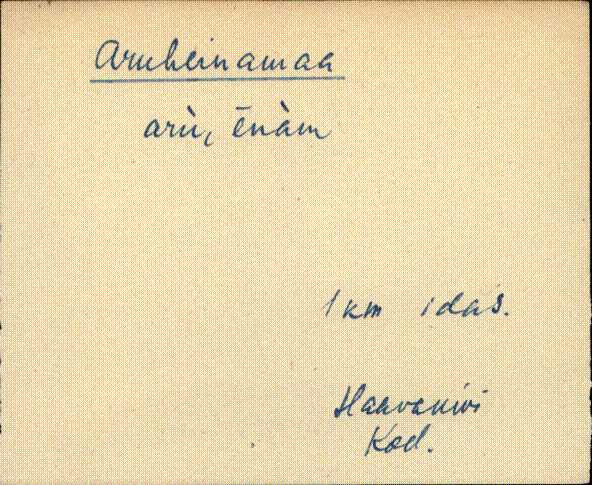 Aruheinamaa
arù, ēnàm
1 km idas.
Haavakivi
Kod.